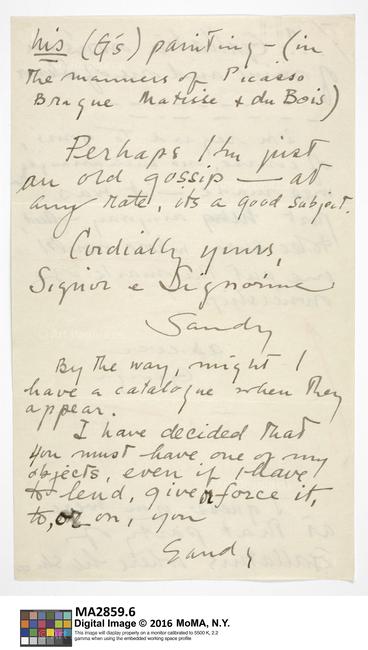 his (G's) painting - (in
the manners of Picasso
Braque Matisse + du Bois)
Perhaps I'm just
an old gossip — at
any rate, its a good subject.
Cordially yours,
Signor e Signorina
Sandy
By the way, might I
have a catalogue when they
appear.
I have decided that
you must have one of my
objects, even if I have
to lend, give or force it,
to, or on, you
Sandy
MA2859.6
Digital Image © 2016 MoMA, N.Y.
This image will display properly on a monitor calibrated to 5500 K, 2.2
gamma when using the embedded working space profile